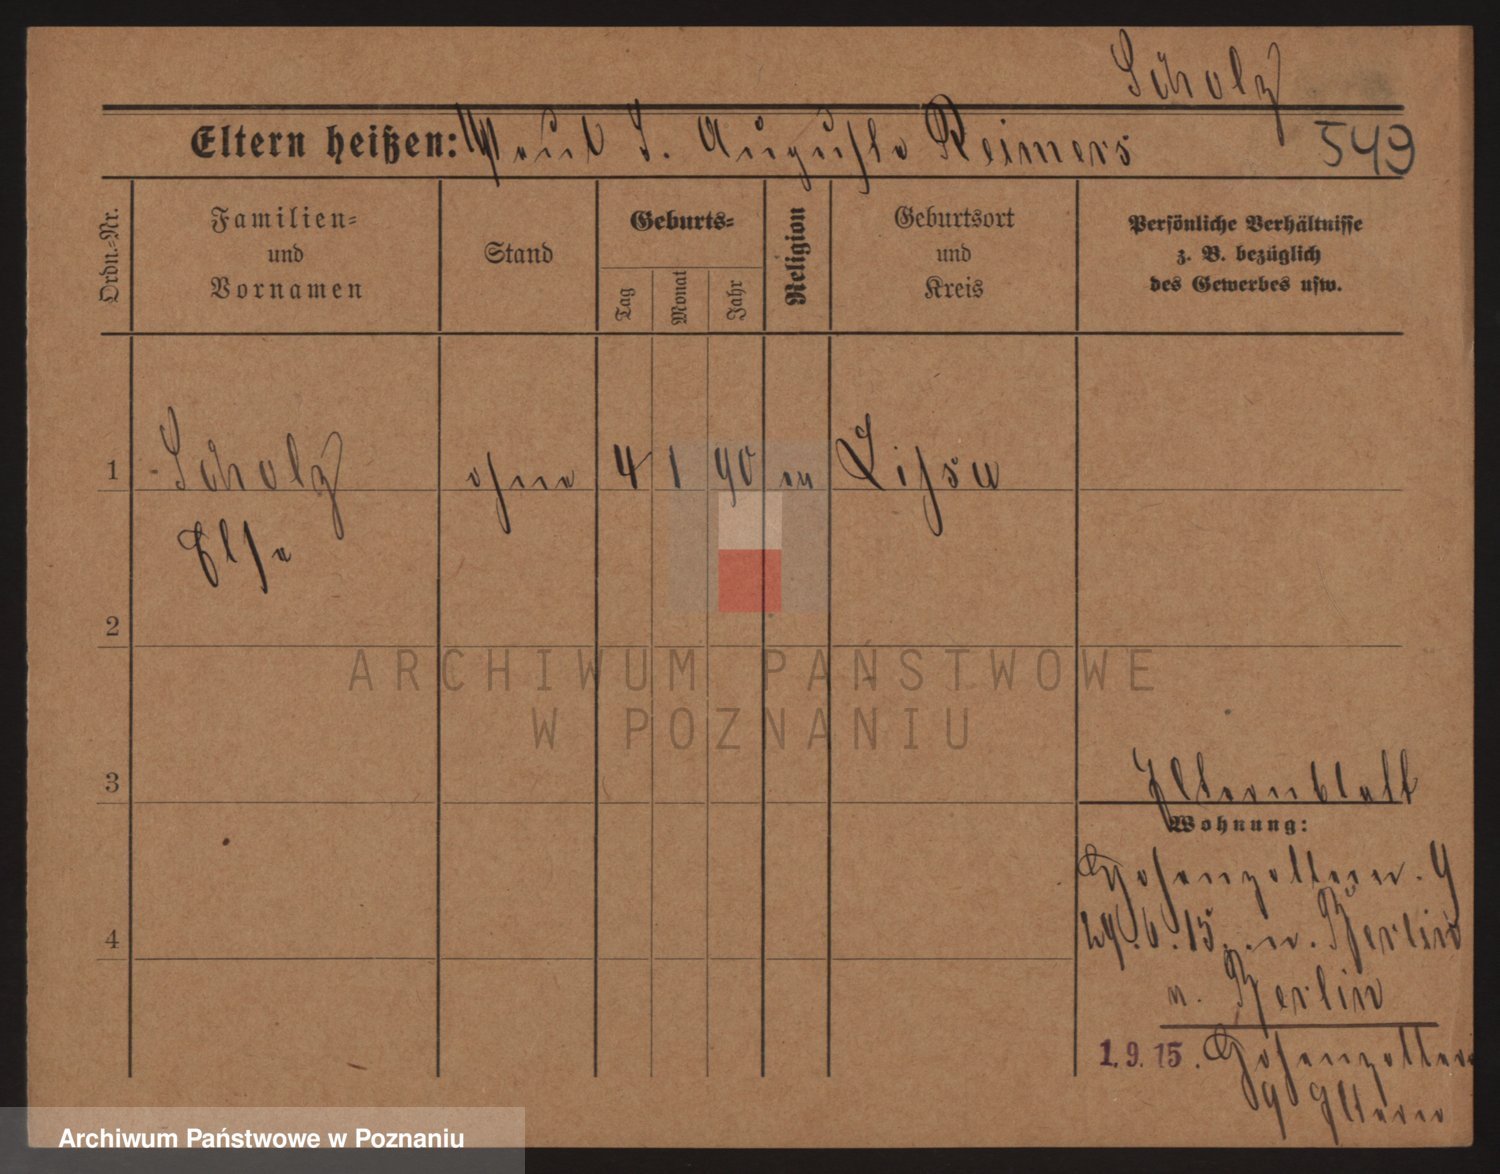 Scholz
Eltern heißen: Paul S. Auguste Reimers
549
Ordn.-Nr.
Familien- und Vornamen
Stand
Geburts-
Tag
Monat
Jahr
Religion
Geburtsort und Kreis
Persönliche Verhältnisse
z. B. bezüglich
des Gewerbes usw.
1 Scholz ohne 4 1 90 ev Lissa
Else
2
ARCHIWUM PAŃSTWOWE
W POZNANIU
3
Elternblatt
Wohnung:
Hohenzollern. 9
4
29.6.15. n. Berlin
n. Berlin
1.9.15. Hohenzollern
9 Eltern
Archiwum Państwowe w Poznaniu